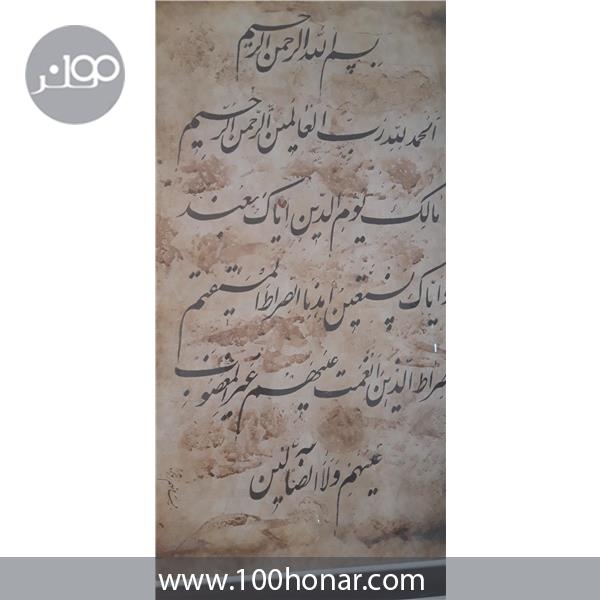 بسم الله الرحمن الرحیم
الحمد لله رب العالمین الرحمن الرحیم
مالک یوم الدین ایاک نعبد
و ایاک نستعین اهدنا الصراط المستقیم
صراط الذین انعمت علیهم غیر المغضوب
علیهم ولا الضالین
www.100honar.com